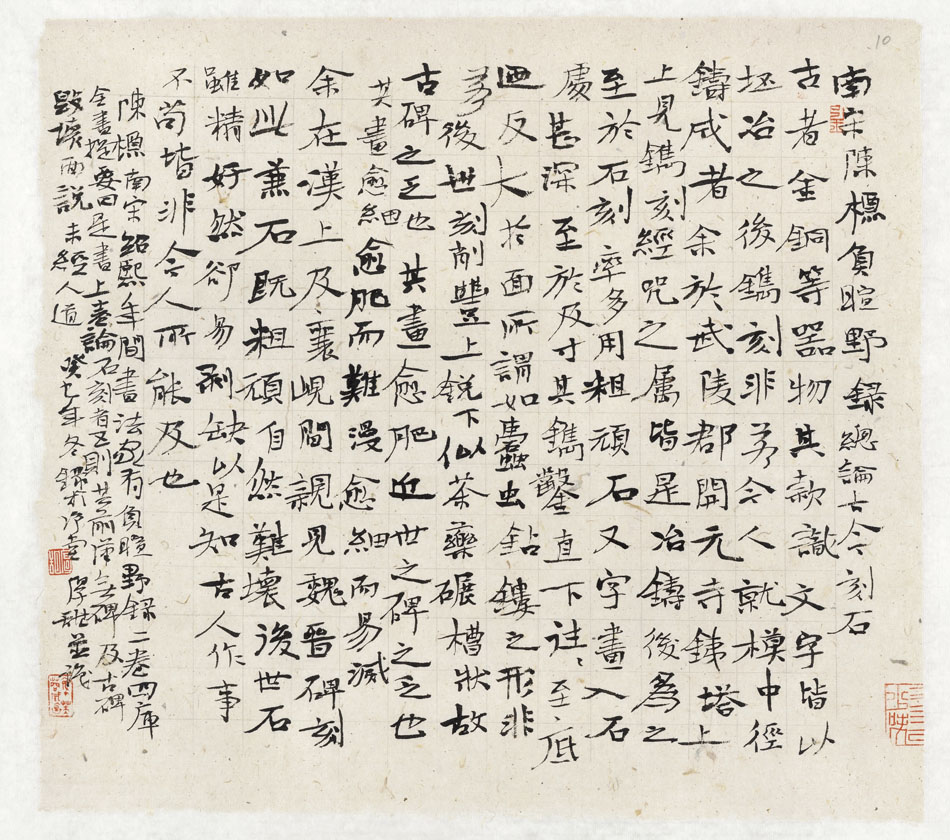 南宋陳槱負暄野錄總論古今刻石
古者金銅等器物其款識文字皆以
坯冶之後鐫刻非若今人就模中徑
鑄成者余於武陵郡開元寺鐵塔上
上見鐫刻經呪之屬皆是冶鑄後為之
至於石刻率多用粗頑石又字畫入石
處甚深至於及寸其鐫鑿直下往往至底
迺反大於面所謂如蠹虫鉆鏤之形非
若後世刻削豐上銳下似茶藥碾槽狀故
古碑之乏也其畫愈肥近世之碑之乏也
其畫愈細愈肥而難漫愈細而易滅
余在漢上及襄峴間親見魏晉碑刻
如此兼石既粗頑自然難壞後世石
雖精好然卻易剥缺以是知古人作事
不苟皆非今人所能及也
陳槱南宋紹熙年間書法家有負暄野錄二卷四庫
全書提要曰是書上卷論石刻者五則其前漢無碑及古碑
毀壞兩說未經人道 癸七年冬錄於淨堂
10